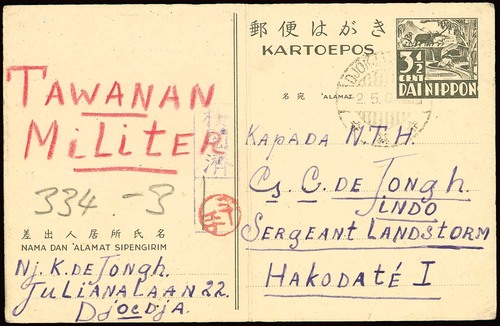 郵便はがき
KARTOEPOS
3½
CENT
DAI NIPPON
名宛 'ALAMAT
2.5.0
TAWANAN
MiLiTER
334.-3
差出人居所氏名
NAMA DAN 'ALAMAT SIPENGIRIM
Nj. K. DE Jongh.
JuLianaLaan 22.
Djocdja.
Kapada N.T.H.
Cs. C. DE Jongh.
INDO
Sergeant Landstorm
Hakodaté I